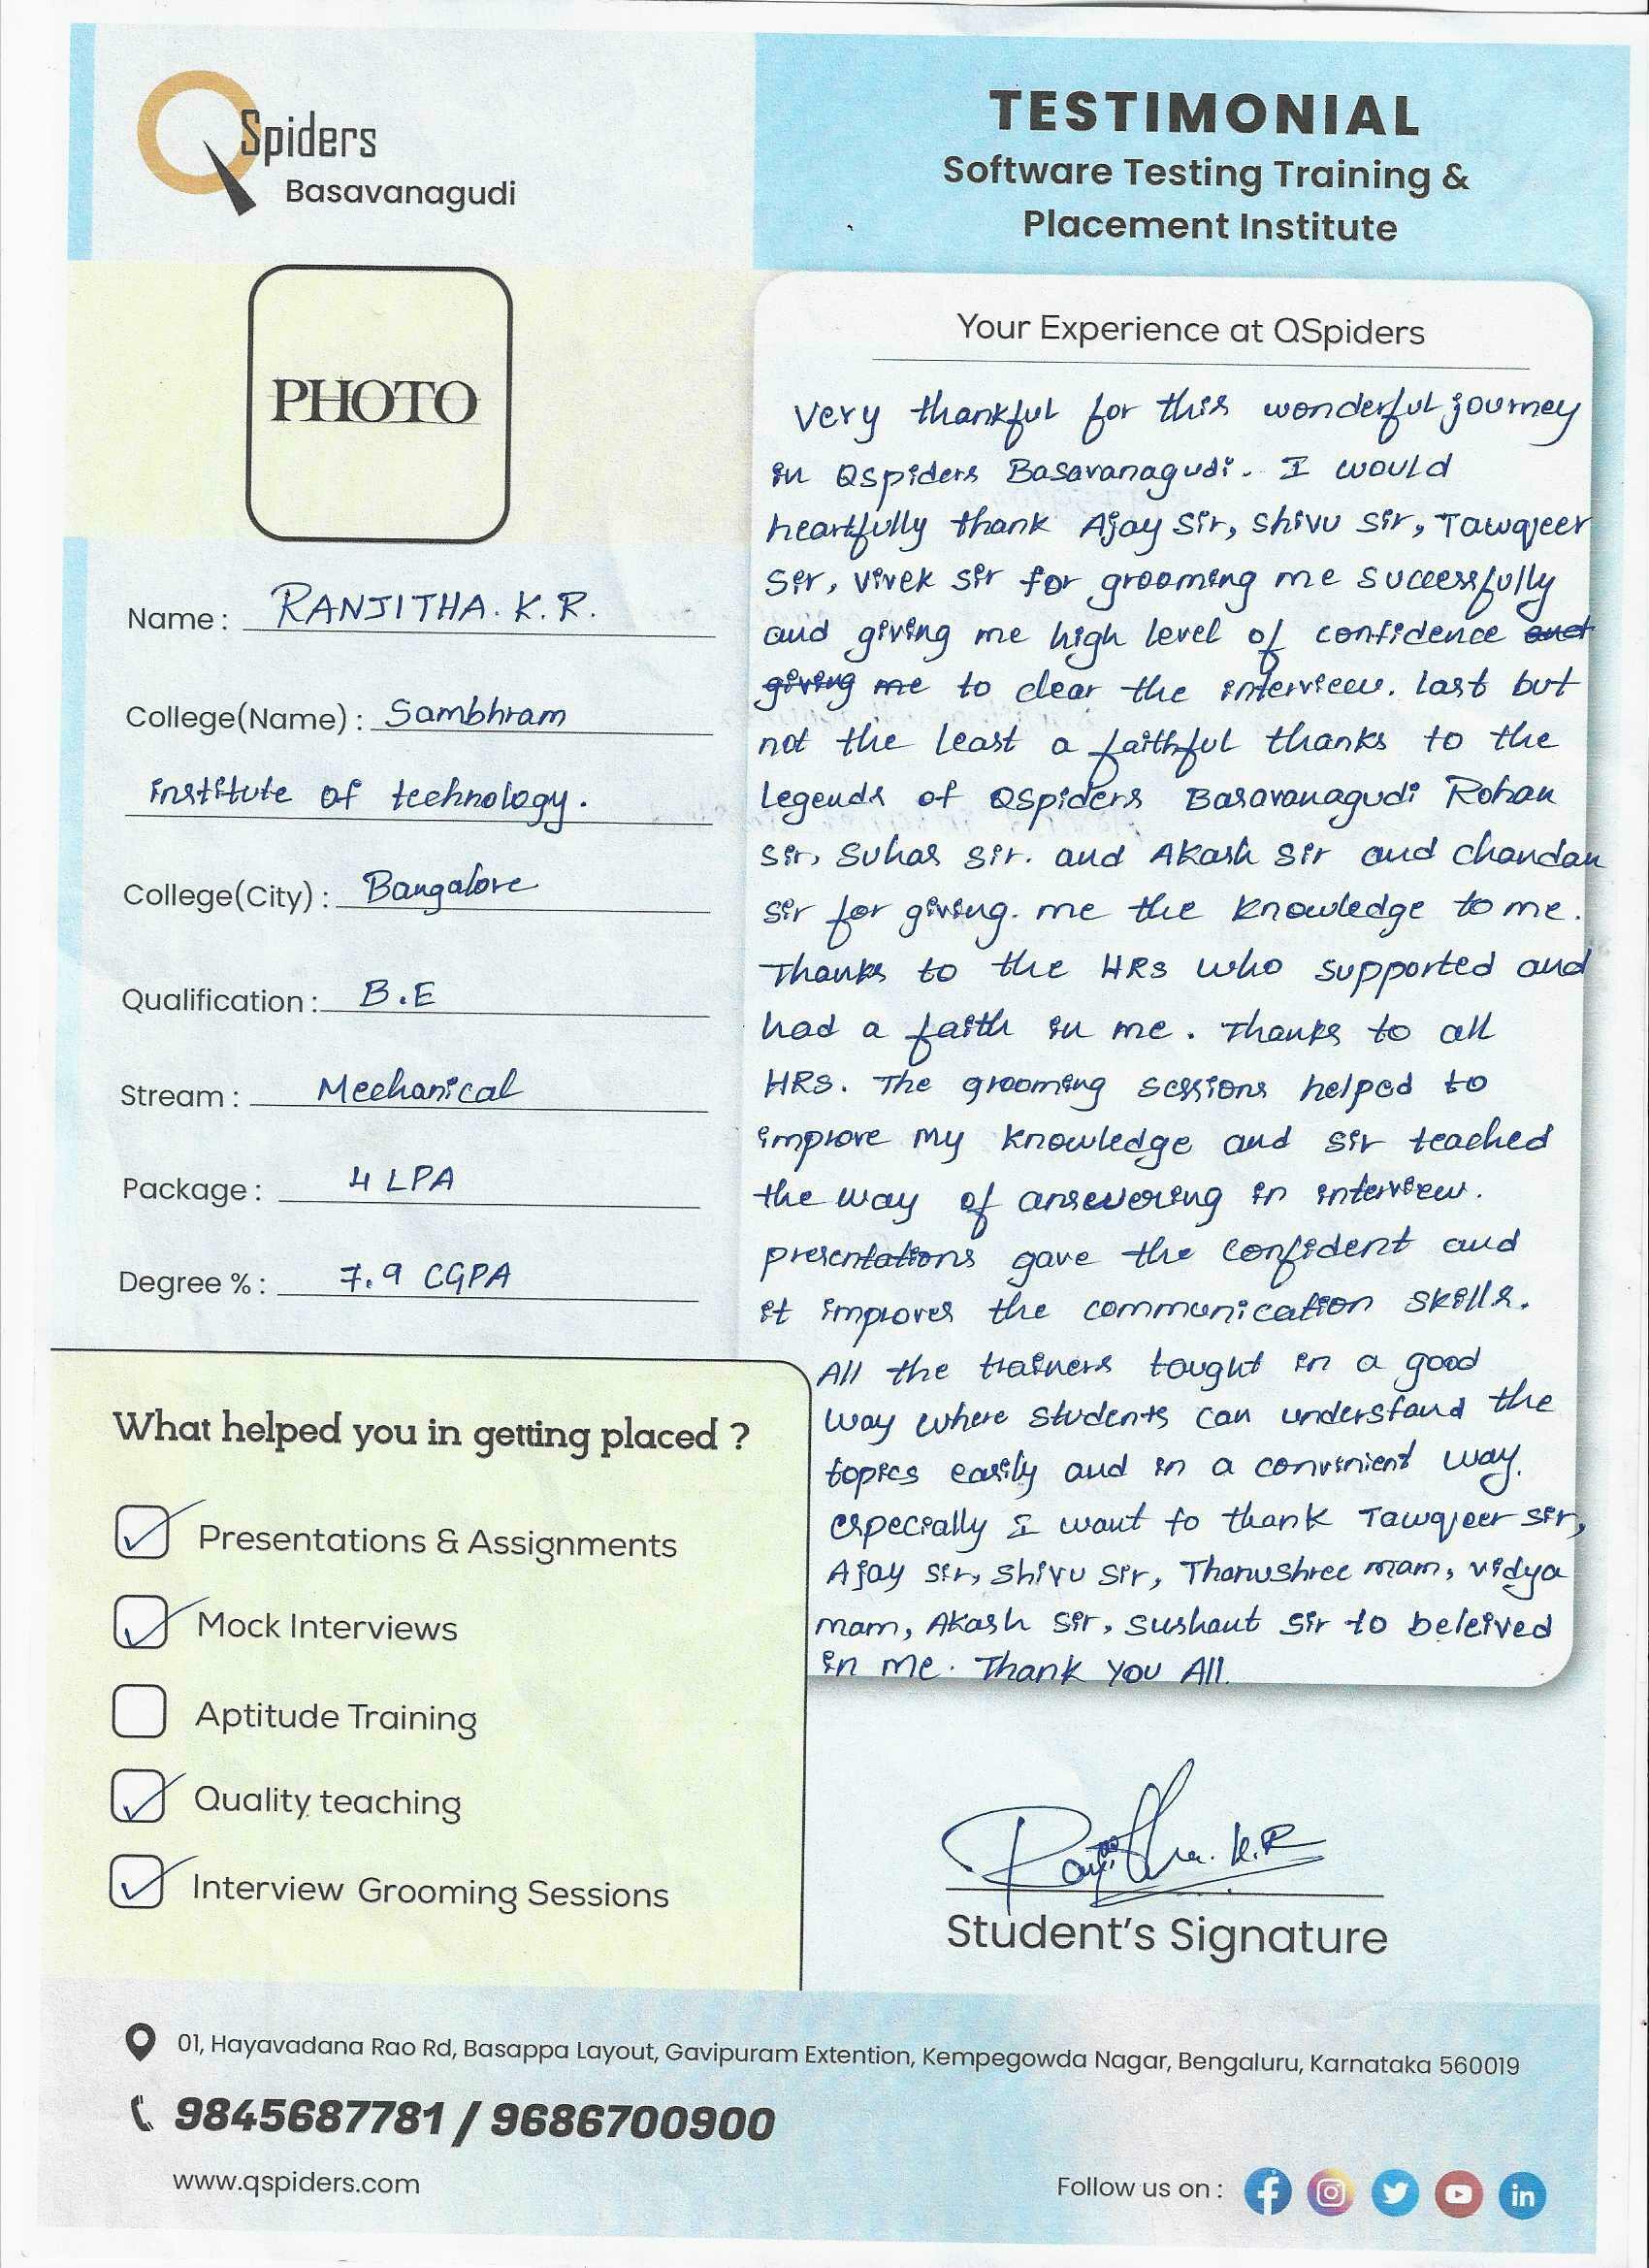 QSpiders
Basavanagudi
TESTIMONIAL
Software Testing Training &
Placement Institute
PHOTO
Name : RANJITHA. K. R.
College(Name) : Sambhram
institute of technology.
College(City) : Bangalore
Qualification : B.E
Stream : Mechanical
Package : 4 LPA
Degree % : 7.9 CGPA
Your Experience at QSpiders
Very thankful for this wonderful journey
in Qspiders Basavanagudi. I would
heartfully thank Ajay Sir, Shivu Sir, Tawqeer
Sir, Vivek sir for grooming me successfully
and giving me high level of confidence and
giving me to clear the interview. last but
not the least a faithful thanks to the
Legends of QSpiders Basavanagudi Rohan
Sir, Suhas Sir. and Akash Sir and Chandan
sir for giving. me the knowledge to me.
Thanks to the HRs who supported and
had a faith in me. Thanks to all
HRs. The grooming sessions helped to
improve my knowledge and sir teached
the way of answering in interview.
presentations gave the confident and
it improves the communication skills.
All the trainers tought in a good
way where students can understand the
topics easily and in a convinient way.
especially I want to thank Tawqeer sir,
Ajay sir, Shivu Sir, Thanushree mam, vidya
mam, Akash Sir, Sushant Sir to beleived
in me. Thank You All.
What helped you in getting placed ?
Presentations & Assignments
Mock Interviews
Aptitude Training
Quality teaching
Interview Grooming Sessions
Ranjitha. K.R
Student's Signature
01, Hayavadana Rao Rd, Basappa Layout, Gavipuram Extention, Kempegowda Nagar, Bengaluru, Karnataka 560019
9845687781 / 9686700900
www.qspiders.com
Follow us on :